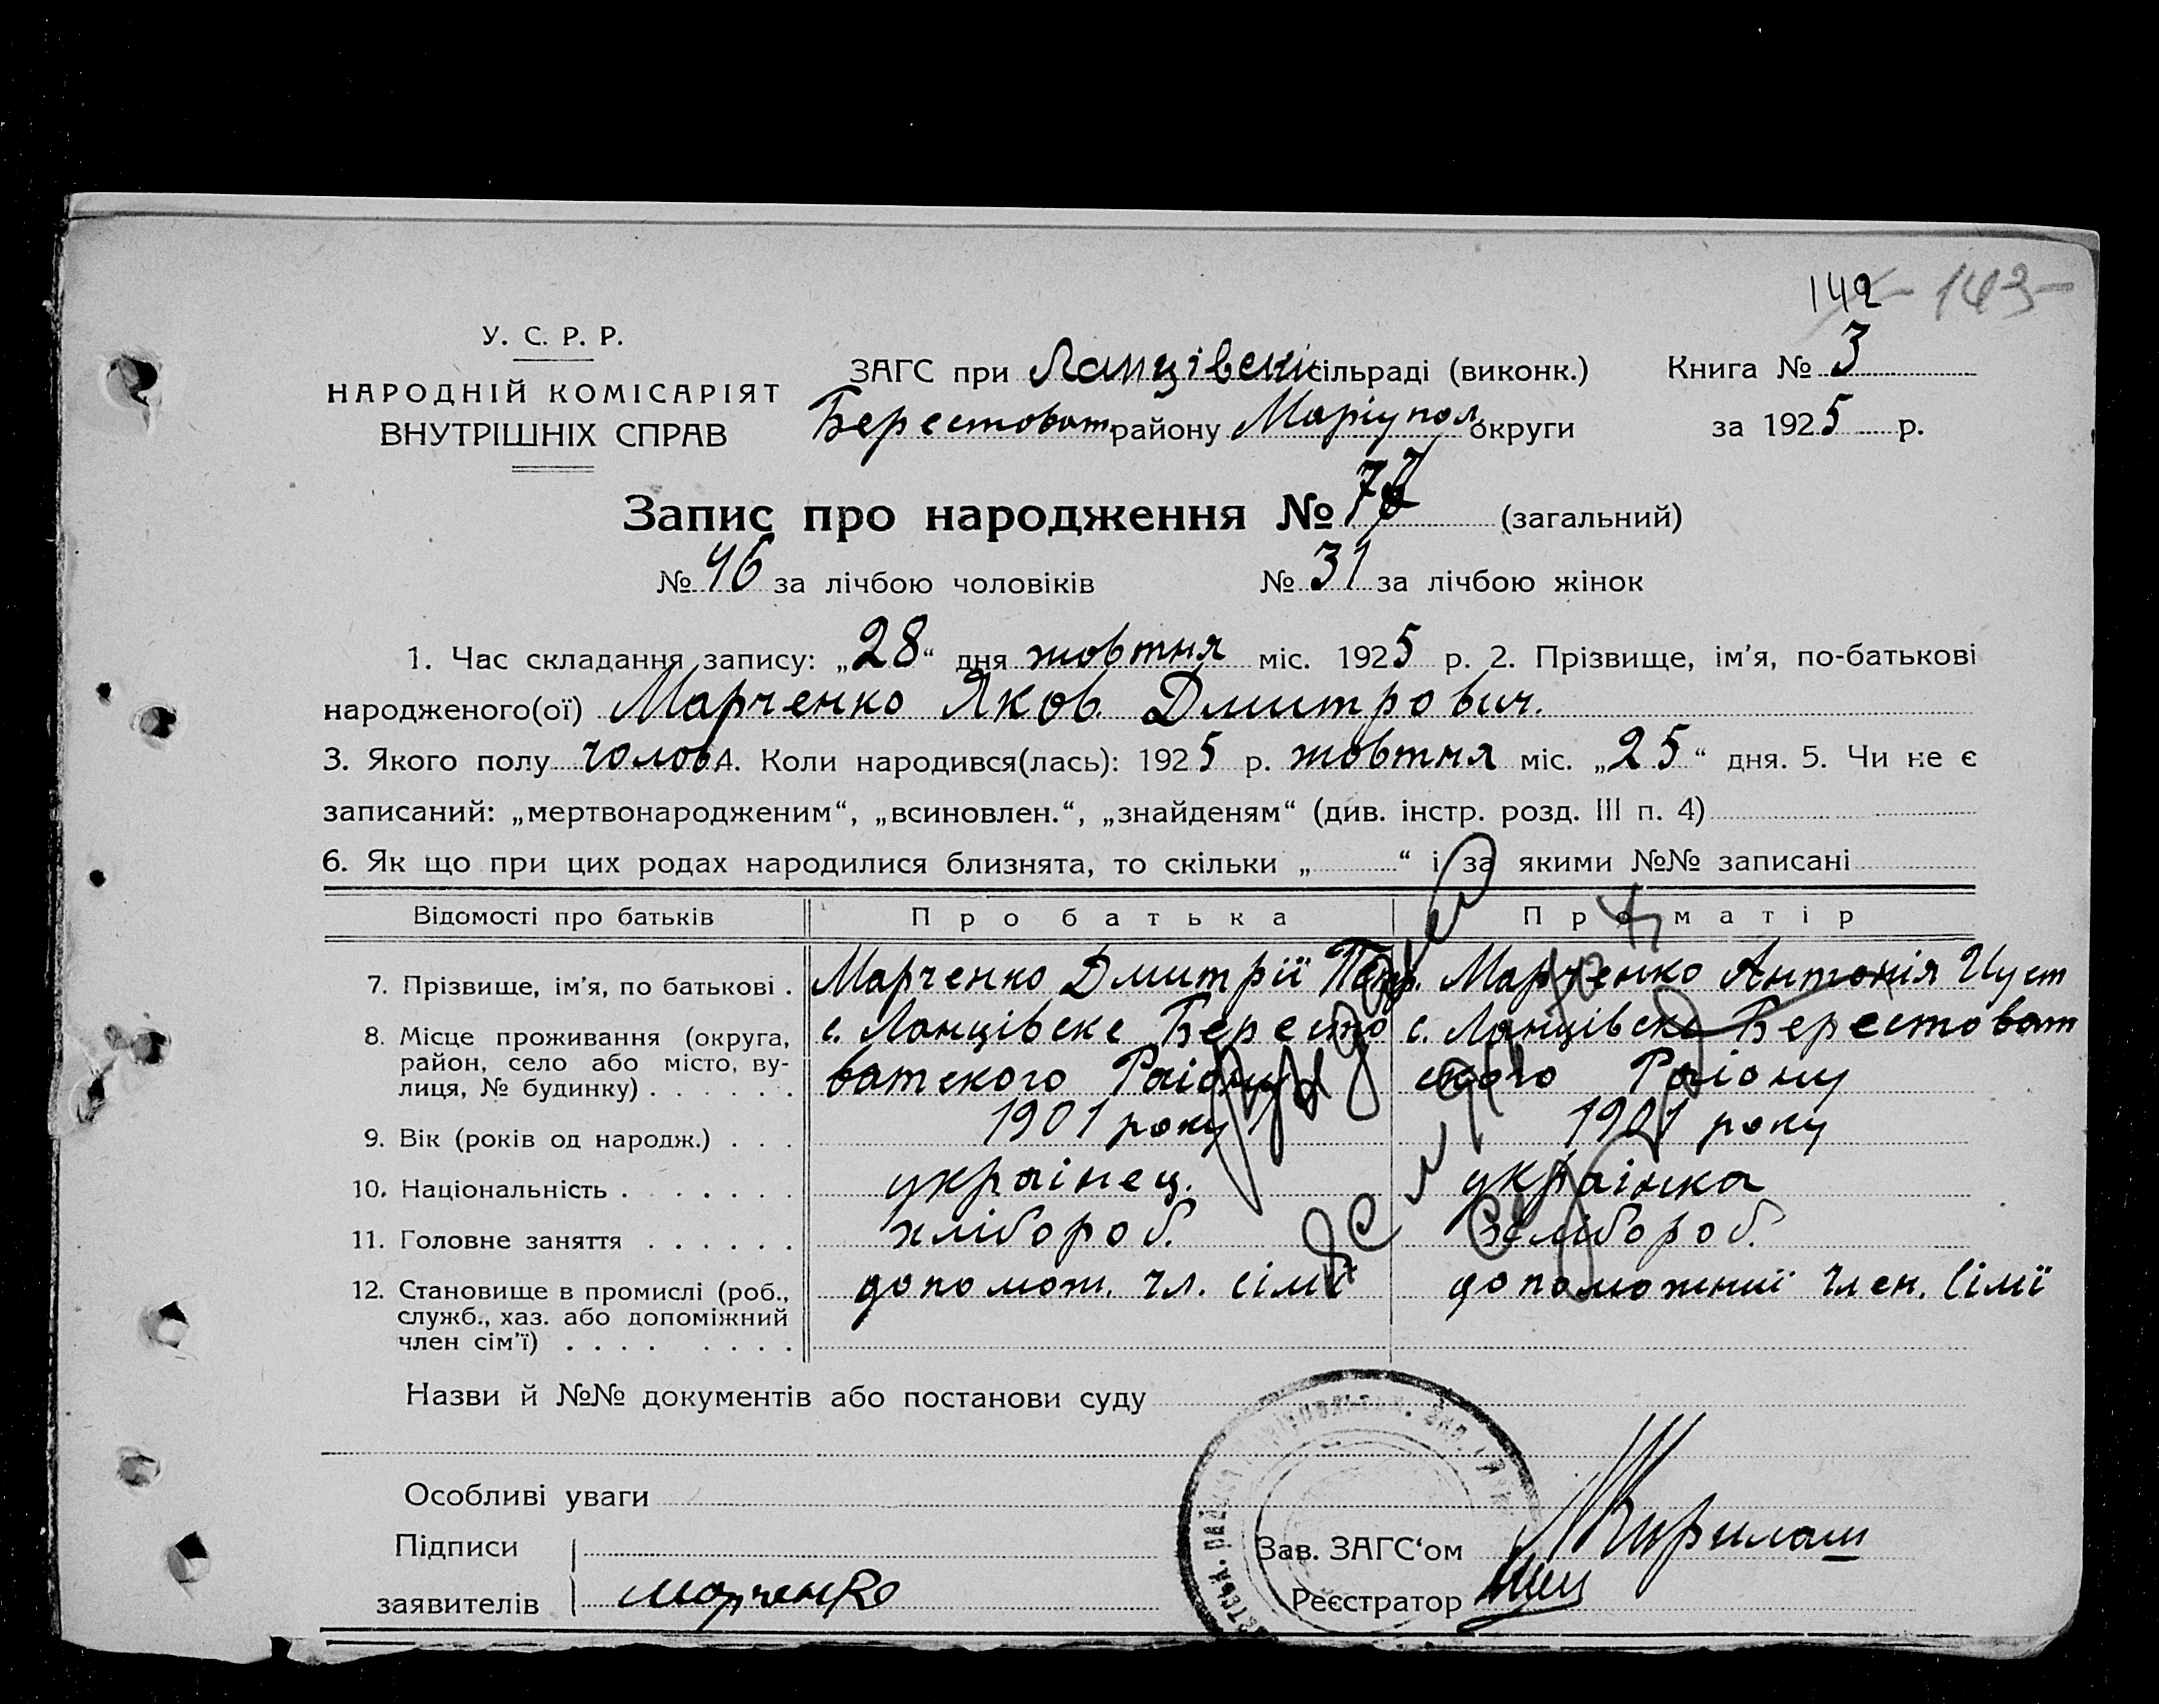 142 143
У. С. Р. Р.
НАРОДНІЙ КОМІСАРІЯТ
ВНУТРІШНІХ СПРАВ
ЗАГС при Ланцівські сільраді (виконк.) Книга № 3
Берестоват. району Маріупол. округи за 1925 р.
Запис про народження № 77 (загальний)
№ 46 за лічбою чоловіків № 31 за лічбою жінок
1. Час складання запису: „28“ дня жовтня міс. 1925 р. 2. Прізвище, ім’я, по-батькові
народженого(ої) Марченко Яков Дмитрович.
3. Якого полу чолов. 4. Коли народився(лась): 1925 р. жовтня міс. „25“ дня. 5. Чи не є
записаний: „мертвонародженим“, „всиновлен.“, „знайденям“ (див. інстр. розд. III п. 4)
6. Як що при цих родах народилися близнята, то скільки „ “ і за якими №№ записані
Відомості про батьків Про батька Про матір
7. Прізвище, ім’я, по батькові . Марченко Дмитрії Петр. Марченко Антонія
8. Місце проживання (округа, район, село або місто, вулиця, № будинку) с. Ланцівске Берестоватского Раіону с. Ланцівске Берестоватского Раіону
9. Вік (років од народж.) . . . 1901 року 1901 року
10. Національність . . . . . . . українец. українка
11. Головне заняття . . . . . . хлібороб. хлібороб.
12. Становище в промислі (роб., служб., хаз. або допоміжний член сім’ї) допомож. чл. сімї допоможниї член. Сімї
Назви й №№ документів або постанови суду
Особливі уваги
Підписи
Зав. ЗАГС‘ом
заявителів Марченко
Реєстратор